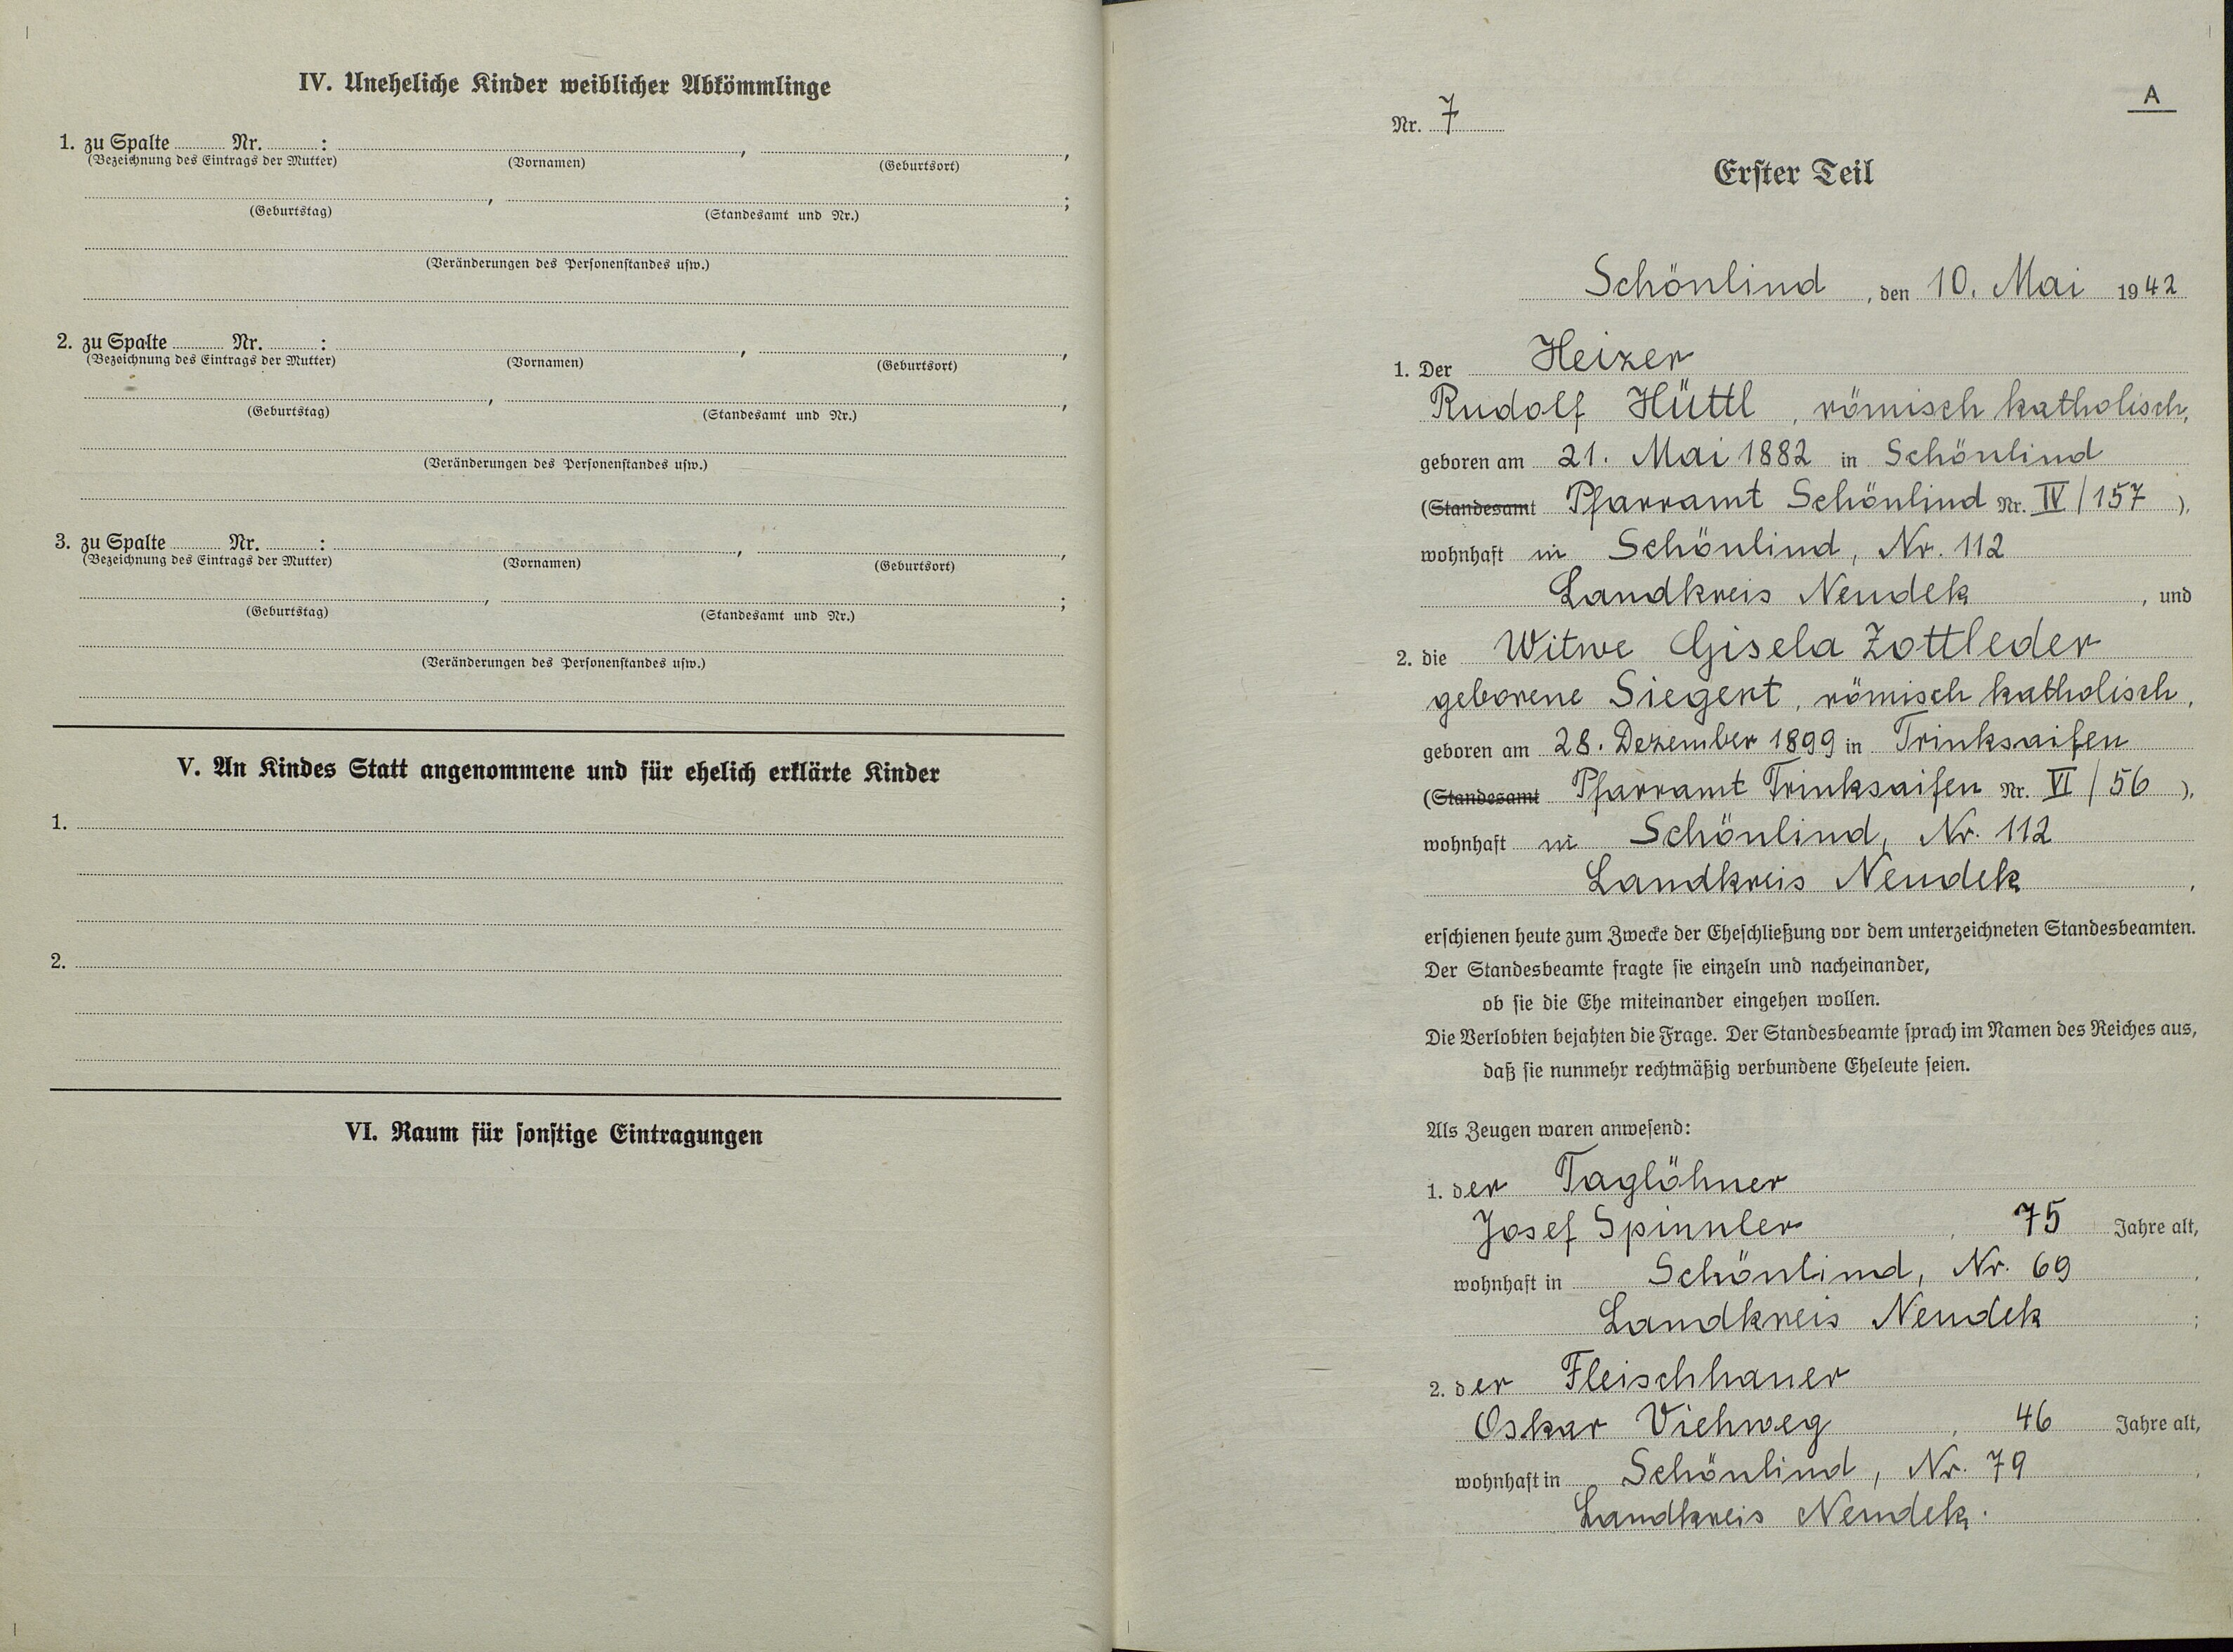 IV. Uneheliche Kinder weiblicher Abkömmlinge
1. zu Spalte Nr. : , ,
(Bezeichnung des Eintrags der Mutter) (Vornamen) (Geburtsort)
, ;
(Geburtstag) (Standesamt und Nr.)
(Veränderungen des Personenstandes usw.)
2. zu Spalte Nr. : , ,
(Bezeichnung des Eintrags der Mutter) (Vornamen) (Geburtsort)
, ,
(Geburtstag) (Standesamt und Nr.)
(Veränderungen des Personenstandes usw.)
3. zu Spalte Nr. : , ,
(Bezeichnung des Eintrags der Mutter) (Vornamen) (Geburtsort)
, ;
(Geburtstag) (Standesamt und Nr.)
(Veränderungen des Personenstandes usw.)
V. An Kindes Statt angenommene und für ehelich erklärte Kinder
1.
2.
VI. Raum für sonstige Eintragungen
A
Nr. 7
Erster Teil
Schönlind, den 10. Mai 1942
1. Der Heizer
Rudolf Hüttl, römisch katholisch,
geboren am 21. Mai 1882 in Schönlind
(Standesamt Pfarramt Schönlind Nr. IV/157),
wohnhaft in Schönlind, Nr. 112
Landkreis Neudek, und
2. die Witwe Gisela Zottleder
geborene Siegert, römisch katholisch,
geboren am 28. Dezember 1899 in Trinksaifen
(Standesamt Pfarramt Trinksaifen Nr. VI/56),
wohnhaft in Schönlind, Nr. 112
Landkreis Neudek,
erschienen heute zum Zwecke der Eheschließung vor dem unterzeichneten Standesbeamten.
Der Standesbeamte fragte sie einzeln und nacheinander,
ob sie die Ehe miteinander eingehen wollen.
Die Verlobten bejahten die Frage. Der Standesbeamte sprach im Namen des Reiches aus,
daß sie nunmehr rechtmäßig verbundene Eheleute seien.
Als Zeugen waren anwesend:
1. der Taglöhner
Josef Spinnler, 75 Jahre alt,
wohnhaft in Schönlind, Nr. 69,
Landkreis Neudek;
2. der Fleischhauer
Oskar Viehweg, 46 Jahre alt,
wohnhaft in Schönlind, Nr. 79,
Landkreis Neudek.